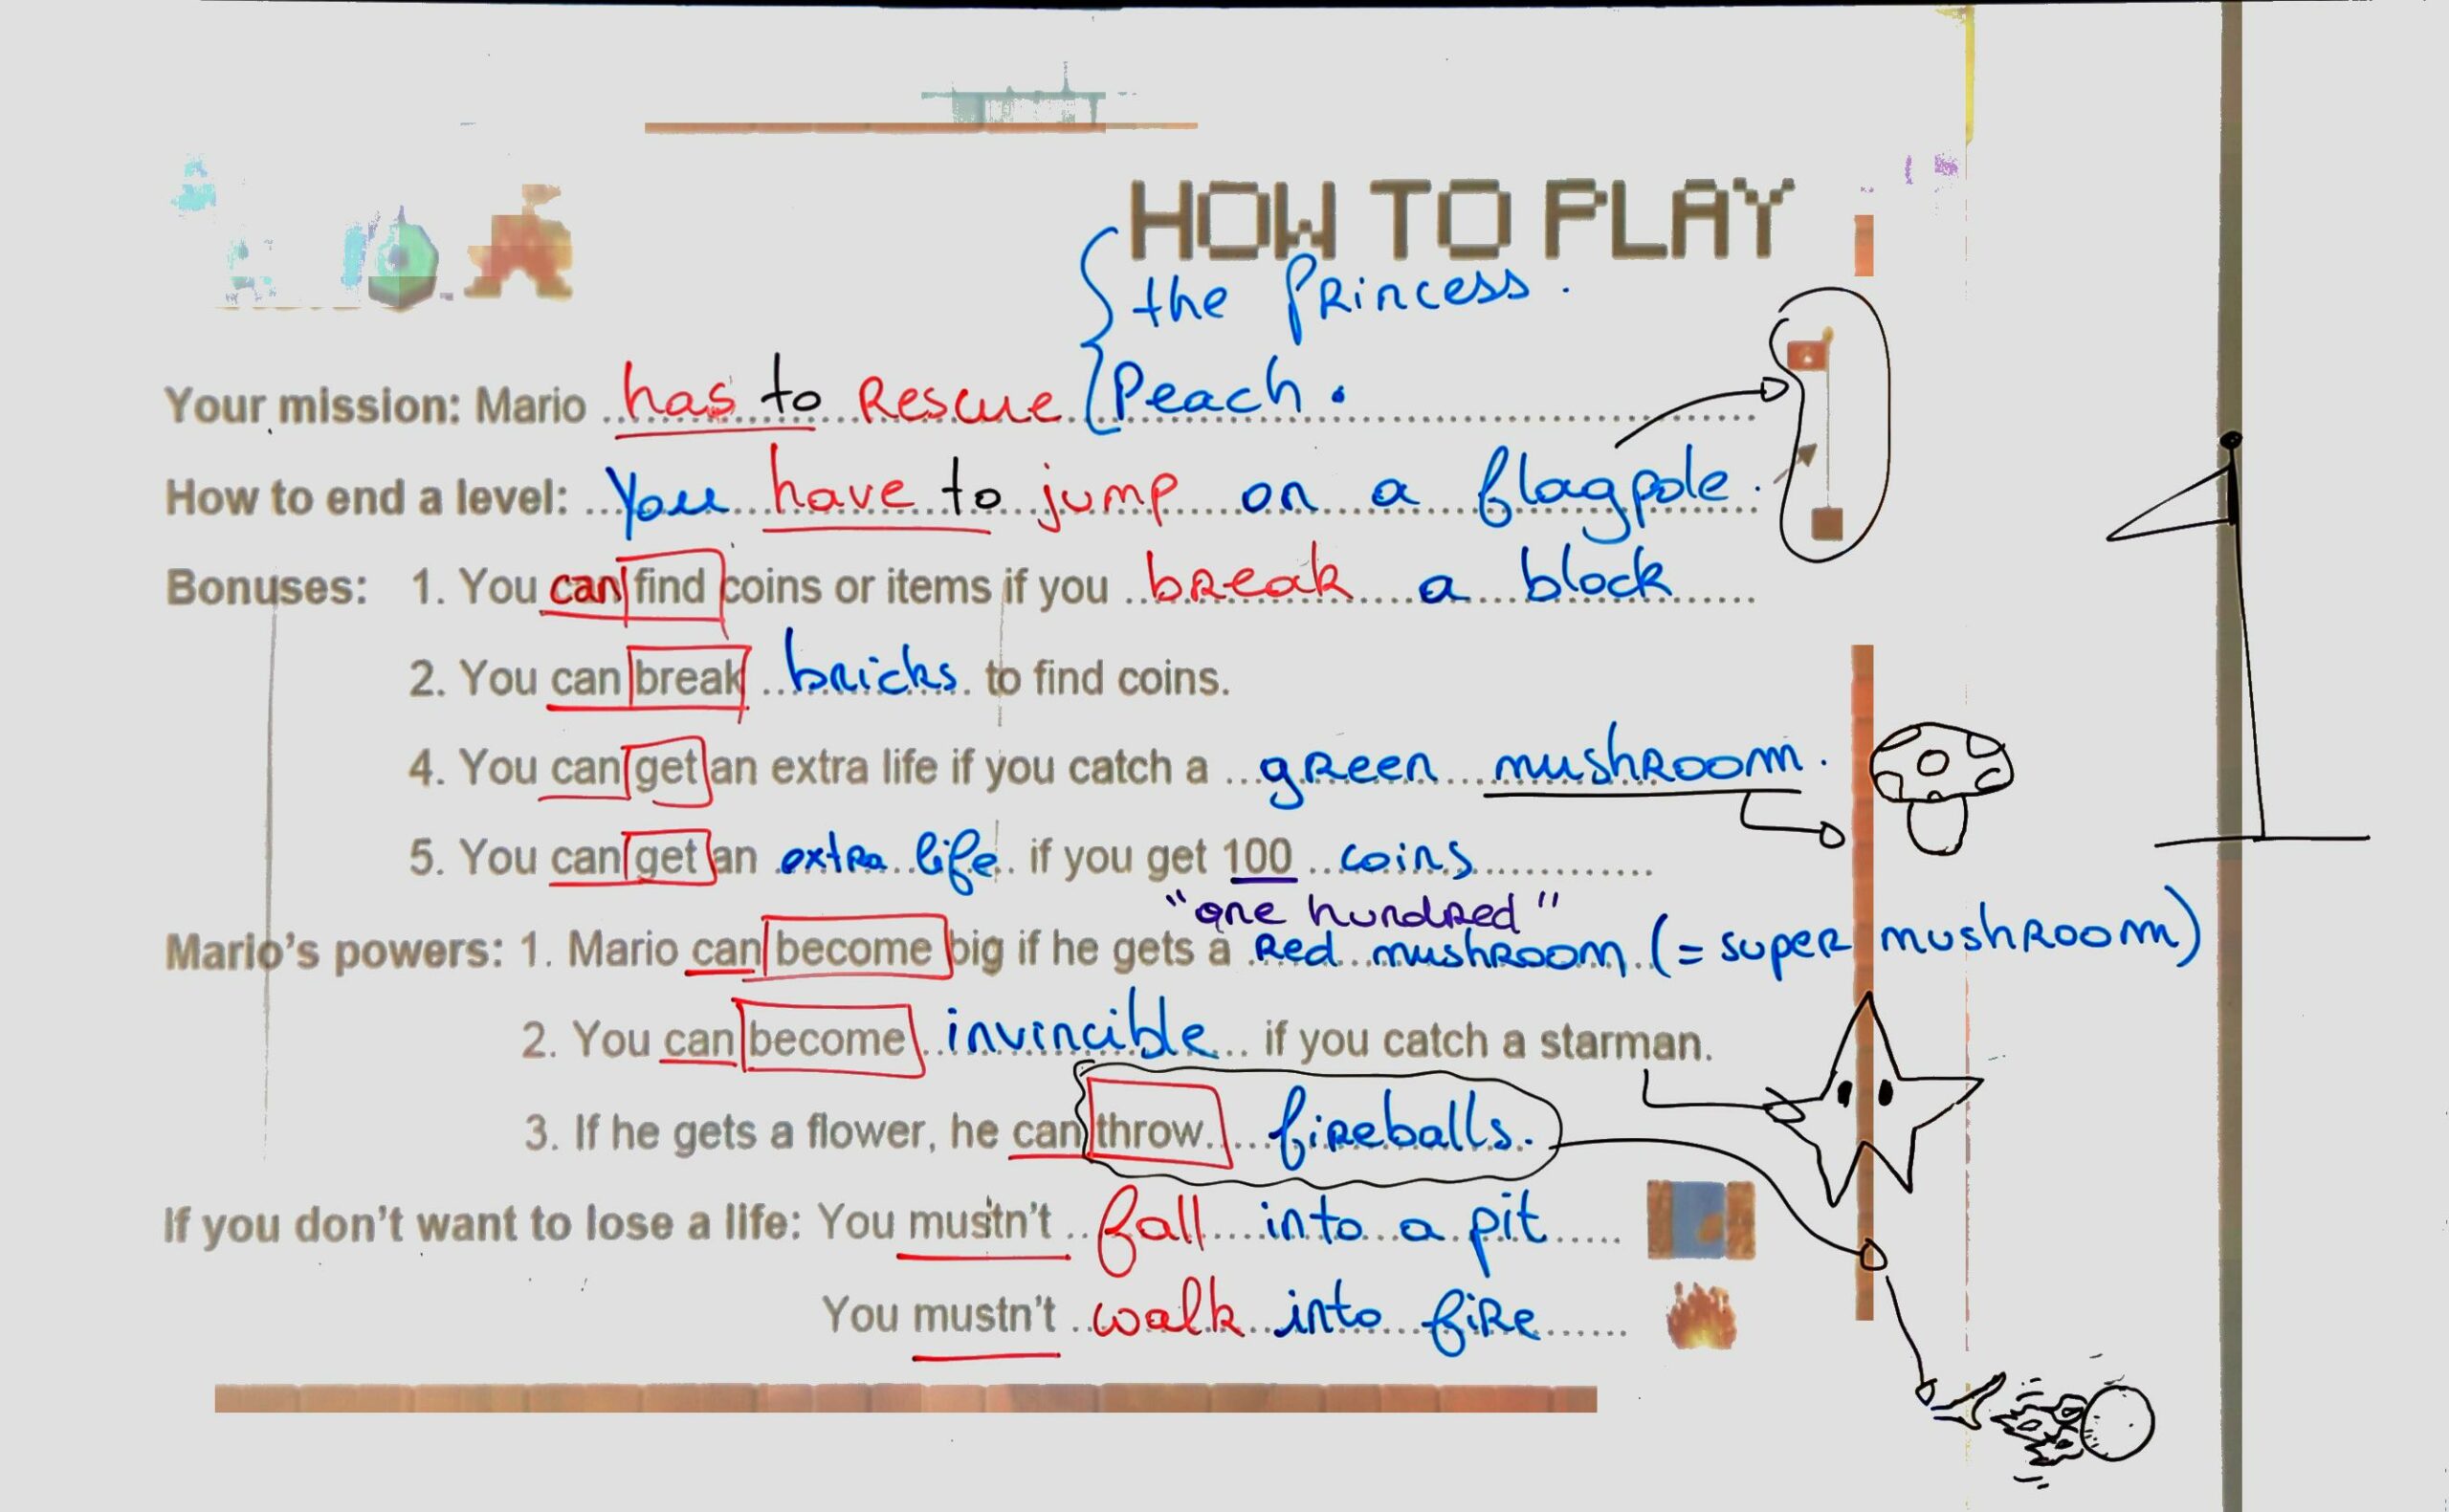 HOW TO PLAY
the Princess.
Your mission: Mario has to Rescue Peach.
How to end a level: You have to jump on a flagpole.
Bonuses: 1. You can find coins or items if you break a block
2. You can break bricks to find coins.
4. You can get an extra life if you catch a green mushroom.
5. You can get an extra life if you get 100 coins
"one hundred"
Mario's powers: 1. Mario can become big if he gets a Red mushroom (= super mushroom)
2. You can become invincible if you catch a starman.
3. If he gets a flower, he can throw fireballs.
If you don't want to lose a life: You mustn't fall into a pit
You mustn't walk into fire